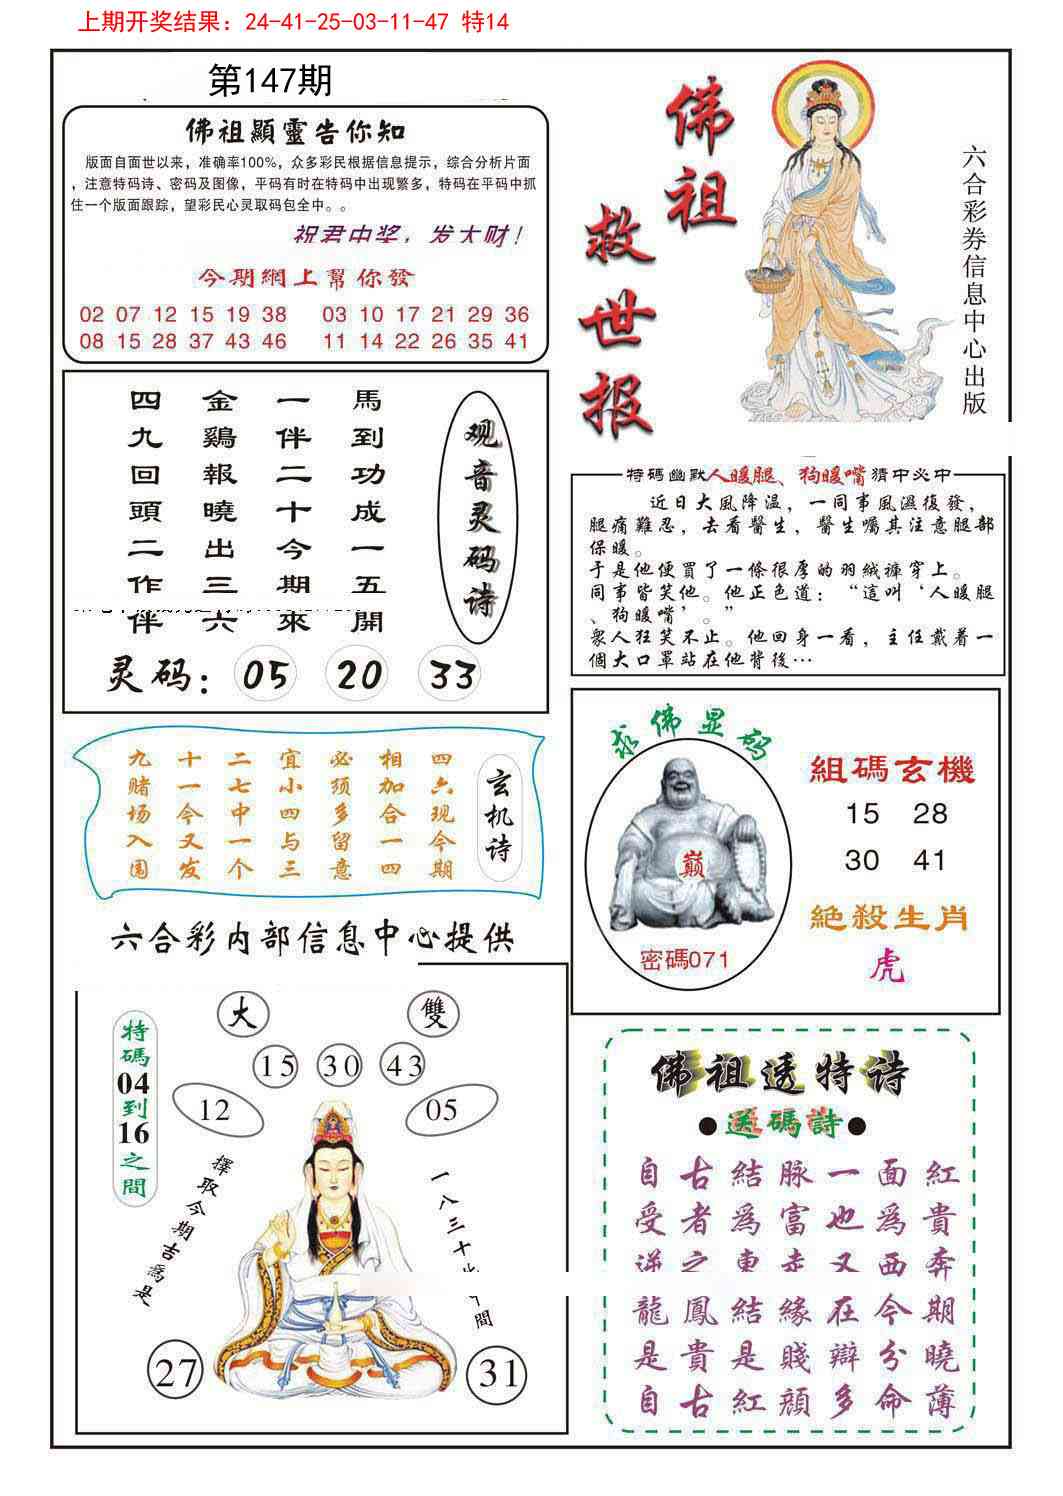 上期开奖结果：24-41-25-03-11-47 特14
第147期
佛祖顯靈告你知
版面自面世以来，准确率100%，众多彩民根据信息提示，综合分析片面
，注意特码诗、密码及图像，平码有时在特码中出现繁多，特码在平码中抓
住一个版面跟踪，望彩民心灵取码包全中。。
祝君中奖，发大财！
今期網上幫你發
02 07 12 15 19 38 03 10 17 21 29 36
08 15 28 37 43 46 11 14 22 26 35 41
佛祖救世报
六合彩券信息中心出版
观音灵码诗
馬到功成一五開
一伴二十今期來
金鷄報曉出三六
四九回頭二作伴
灵码：05 20 33
特碼幽默人暖腿、狗暖嘴猜中必中
近日大風降温，一同事風濕復發，
腿痛難忍，去看醫生，醫生囑其注意腿部
保暖。
于是他便買了一條很厚的羽絨褲穿上。
同事皆笑他。他正色道：“這叫‘人暖腿
、狗暖嘴’。”
衆人狂笑不止。他回身一看，主任戴着一
個大口罩站在他背後…
玄机诗
四六现今期
相加合一四
必须多留意
宜小四与三
二七中一个
十一今又发
九赌场入围
求佛显码
巅
密碼071
組碼玄機
15 28
30 41
絶殺生肖
虎
六合彩内部信息中心提供
大 雙
15 30 43
12 05
特碼04到16之間
擇取今期吉爲是
一八三十
間
27 31
佛祖透特诗
●送碼詩●
自古結脉一面紅
受者爲富也爲貴
逆之東走又西奔
龍鳳結緣在今期
是貴是賤辯分曉
自古紅顔多命薄